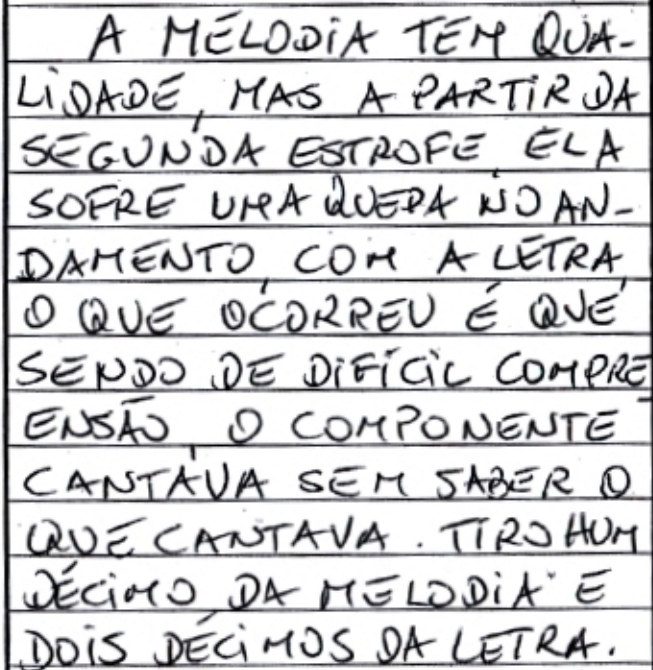 A MELODIA TEM QUA-
LIDADE, MAS A PARTIR DA
SEGUNDA ESTROFE, ELA
SOFRE UMA QUEDA NO AN-
DAMENTO, COM A LETRA,
O QUE OCORREU É QUE
SENDO DE DIFÍCIL COMPRE-
ENSÃO, O COMPONENTE
CANTAVA SEM SABER O
QUE CANTAVA. TIRO HUM
DÉCIMO DA MELODIA E
DOIS DÉCIMOS DA LETRA.